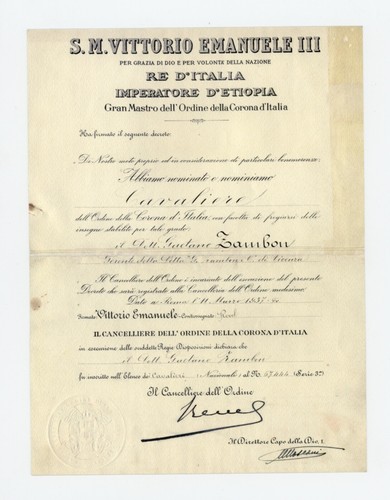 S. M. VITTORIO EMANUELE III
PER GRAZIA DI DIO E PER VOLONTÀ DELLA NAZIONE
RE D'ITALIA
IMPERATORE D'ETIOPIA
Gran Mastro dell'Ordine della Corona d'Italia
Ha firmato il seguente decreto:
Di Nostro moto proprio ed in considerazione di particolari benemerenze:
Abbiamo nominato e nominiamo
Cavaliere
dell'Ordine della Corona d'Italia, con facoltà di fregiarsi delle
insegne stabilite per tale grado:
il Dott. Gaetano Zambon
della Ditta G. Zambon e C. di Vicenza
Il Cancelliere dell'Ordine è incaricato dell'esecuzione del presente
Decreto che sarà registrato alla Cancelleria dell'Ordine medesimo.
Dato a Roma 11 Marzo 1937
Firmato Vittorio Emanuele - Contrassegnato
IL CANCELLIERE DELL'ORDINE DELLA CORONA D'ITALIA
in esecuzione delle suddette Regie Disposizioni dichiara che
il Dott. Gaetano Zambon
fu inscritto nell'Elenco dei Cavalieri (Nazionale) al N. (Serie 3ª)
Il Cancelliere dell'Ordine
Il Direttore Capo della Div. 1